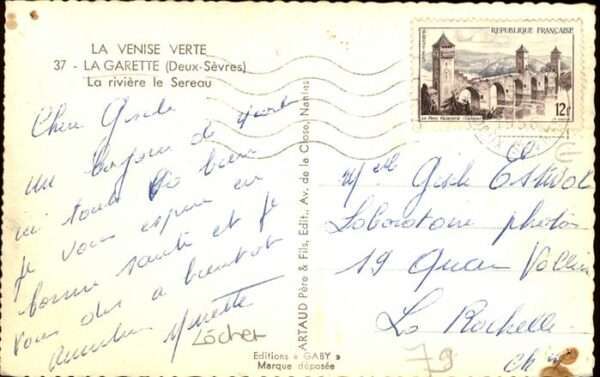 LA VENISE VERTE
37 - LA GARETTE (Deux-Sèvres)
La rivière le Sereau
Chère Gisèle
un bonjour de
ici tout va bien
je vous espère en
bonne santé et je
vous dis a bientôt
Minette
Löcher
ARTAUD Père & Fils, Edit., Av. de la Close, Nantes
Editions « GABY »
Marque déposée
REPUBLIQUE FRANÇAISE
POSTES
LE PONT VALENTRÉ (CAHORS)
12F
Melle Gisèle
Laboratoire photos
19 Quai Vallin
La Rochelle
79